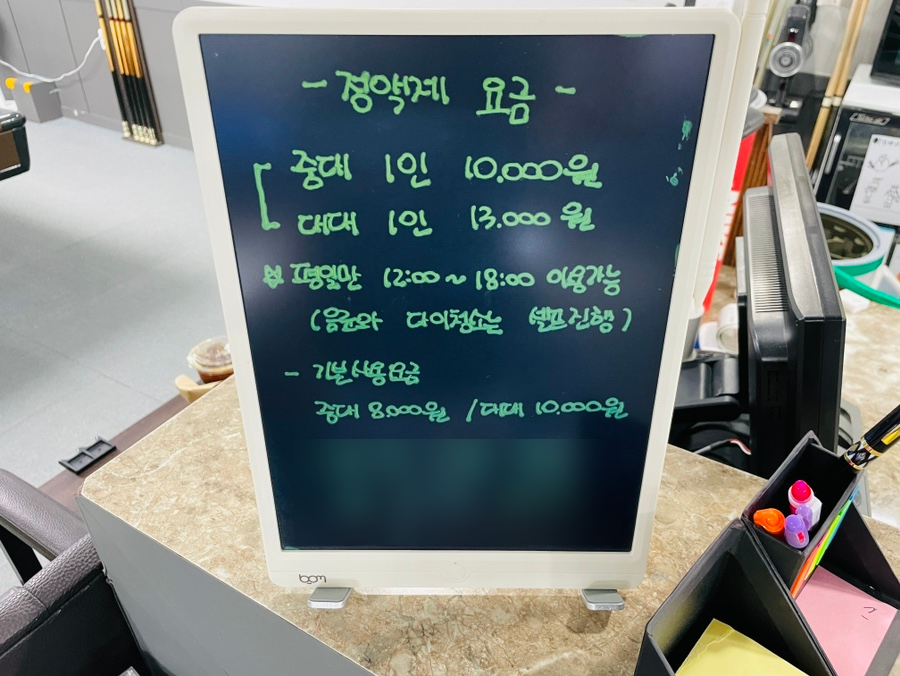 - 정액제 요금 -
중대 1인 10.000원
대대 1인 13.000원
※ 평일만 12:00 ~ 18:00 이용가능
(음료와 다이청소는 셀프진행)
- 기본사용요금
중대 8.000원 / 대대 10.000원
bom